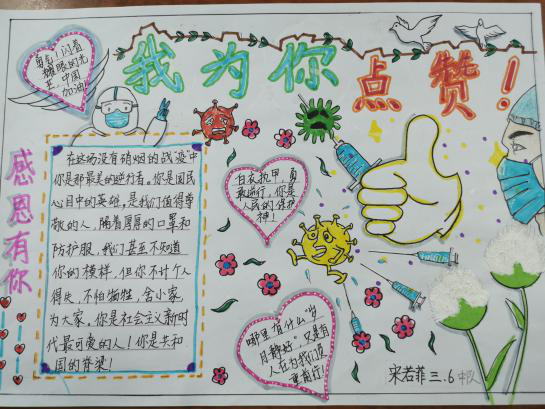 我为你点赞！
勇毛！闪着
耀眼的光
芒，中国
加油
感恩有你
在这场没有硝烟的战"疫"中
你是那最美的逆行者。你是国民
心目中的英雄，是我们值得尊
敬的人，隔着厚厚的口罩和
防护服，我们甚至不知道
你的模样，但你不计个人
得失，不怕牺牲，舍小家
为大家。你是社会主义新时
代最可爱的人！你是共和
国的脊梁！
白衣执甲，勇
敢逆行，你是
人民的保护
神！
哪里有什么"岁
月静好"，只是有
人在为我们负
重前行！
宋若菲 三.6中队